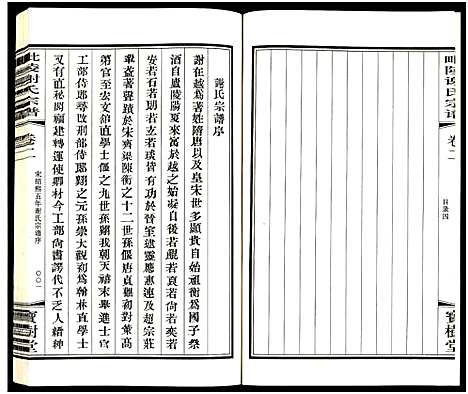 毗陵謝氏宗譜
卷二
目錄四
寶樹堂
謝氏宗譜序
謝在越爲著姓隋唐以及皇宋世多顯貴自始祖衡爲國子祭
酒自廬陵陽夏來寓於越之始寧自後若鯤若尚若奕若
安若石若勘若玄若琰皆有功於晉室建靈應惠連及超宗莊
舉蓋著於宋齊梁陳衡之十二世孫偃唐貞觀初對策高
第官至宏文館直學士偃四世孫翛咸通末舉進士官
工部侍郎尋改刑部侍郎翛之元孫崇大觀初爲翰林直學士
又有直秘閣福建轉運使卿材今工部尚書諤代不乏人縉紳
毗陵謝氏宗譜
卷二
宋紹熙五年謝氏宗譜序
〇〇一
寶樹堂